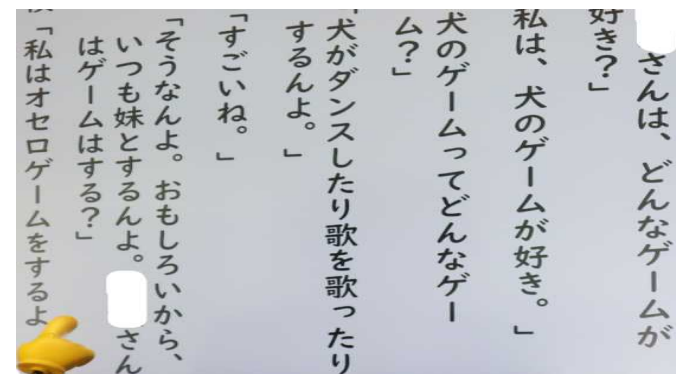 さんは、どんなゲームが
好き？」
私は、犬のゲームが好き。」
犬のゲームってどんなゲー
ム？」
「犬がダンスしたり歌を歌ったり
するんよ。」
「すごいね。」
「そうなんよ。おもしろいから、
いつも妹とするんよ。さん
はゲームはする？」
「私はオセロゲームをするよ